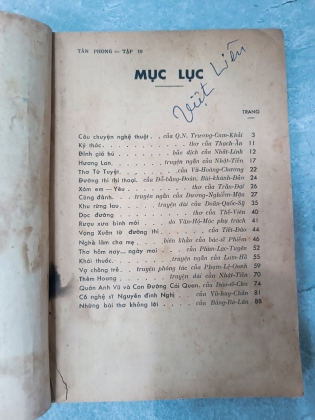 TÂN PHONG — TẬP 19
MỤC LỤC
Viết Liên
TRANG
Câu chuyện nghệ thuật . . của Q.N. Trương-Cam-Khải 3
Ký thác . . . thơ của Thạch-Ẩn 11
Đỉnh gió hú . . . bản dịch của Nhất-Linh 12
Hương Lan . . . truyện ngắn của Nhật-Tiến 17
Thơ Từ Tuyệt . . . của Vũ-Hoàng-Chương 22
Đường thi thi thoại . của Đỗ-bằng-Đoàn, Bùi-khánh-Đản 24
Xóm em — Yêu . . . thơ của Trần-Đại 26
Công đánh . . . truyện ngắn của Dương-Nghiễm-Mậu 27
Khu rừng lau . . . truyện dài của Doãn-Quốc-Sỹ 35
Dọc đường . . . thơ của Thế-Viên 40
Rượu xưa bình mới . . do Văn-Hồ-Mặc phụ trách 41
Vọng Xuân từ đường thi . . . của Tiết-Đào 44
Nghề làm cha mẹ . . biên khảo của bác-sĩ Phiếm 46
Thơ hôm nay... ngày mai . . của Phan-Lạc-Tuyên 52
Khói thuốc . . . truyện ngắn của Lam-Hồ 55
Vợ chồng trẻ . . truyện phóng tác của Phạm-Lệ-Oanh 59
Thềm Hoang . . . truyện dài của Nhật-Tiến 70
Quán Anh Vũ và Con Đường Cái Quan, của Đạo-sĩ-Chu 74
Cô nghệ sĩ Nguyễn đình Nghị . . của Vũ-huy-Chân 81
Những bài thơ không lời . . . của Bằng-Bá-Lân 88